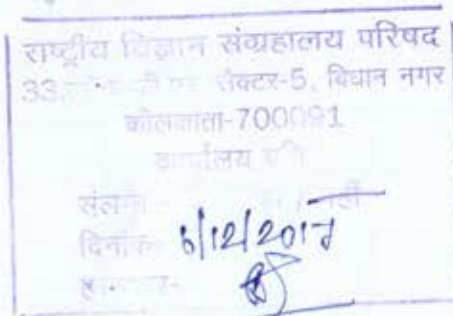 राष्ट्रीय विज्ञान संग्रहालय परिषद
33, सेक्टर-5, विधान नगर
कोलकाता-700091
कार्यालय प्रति
दिनांक- 6/12/2017